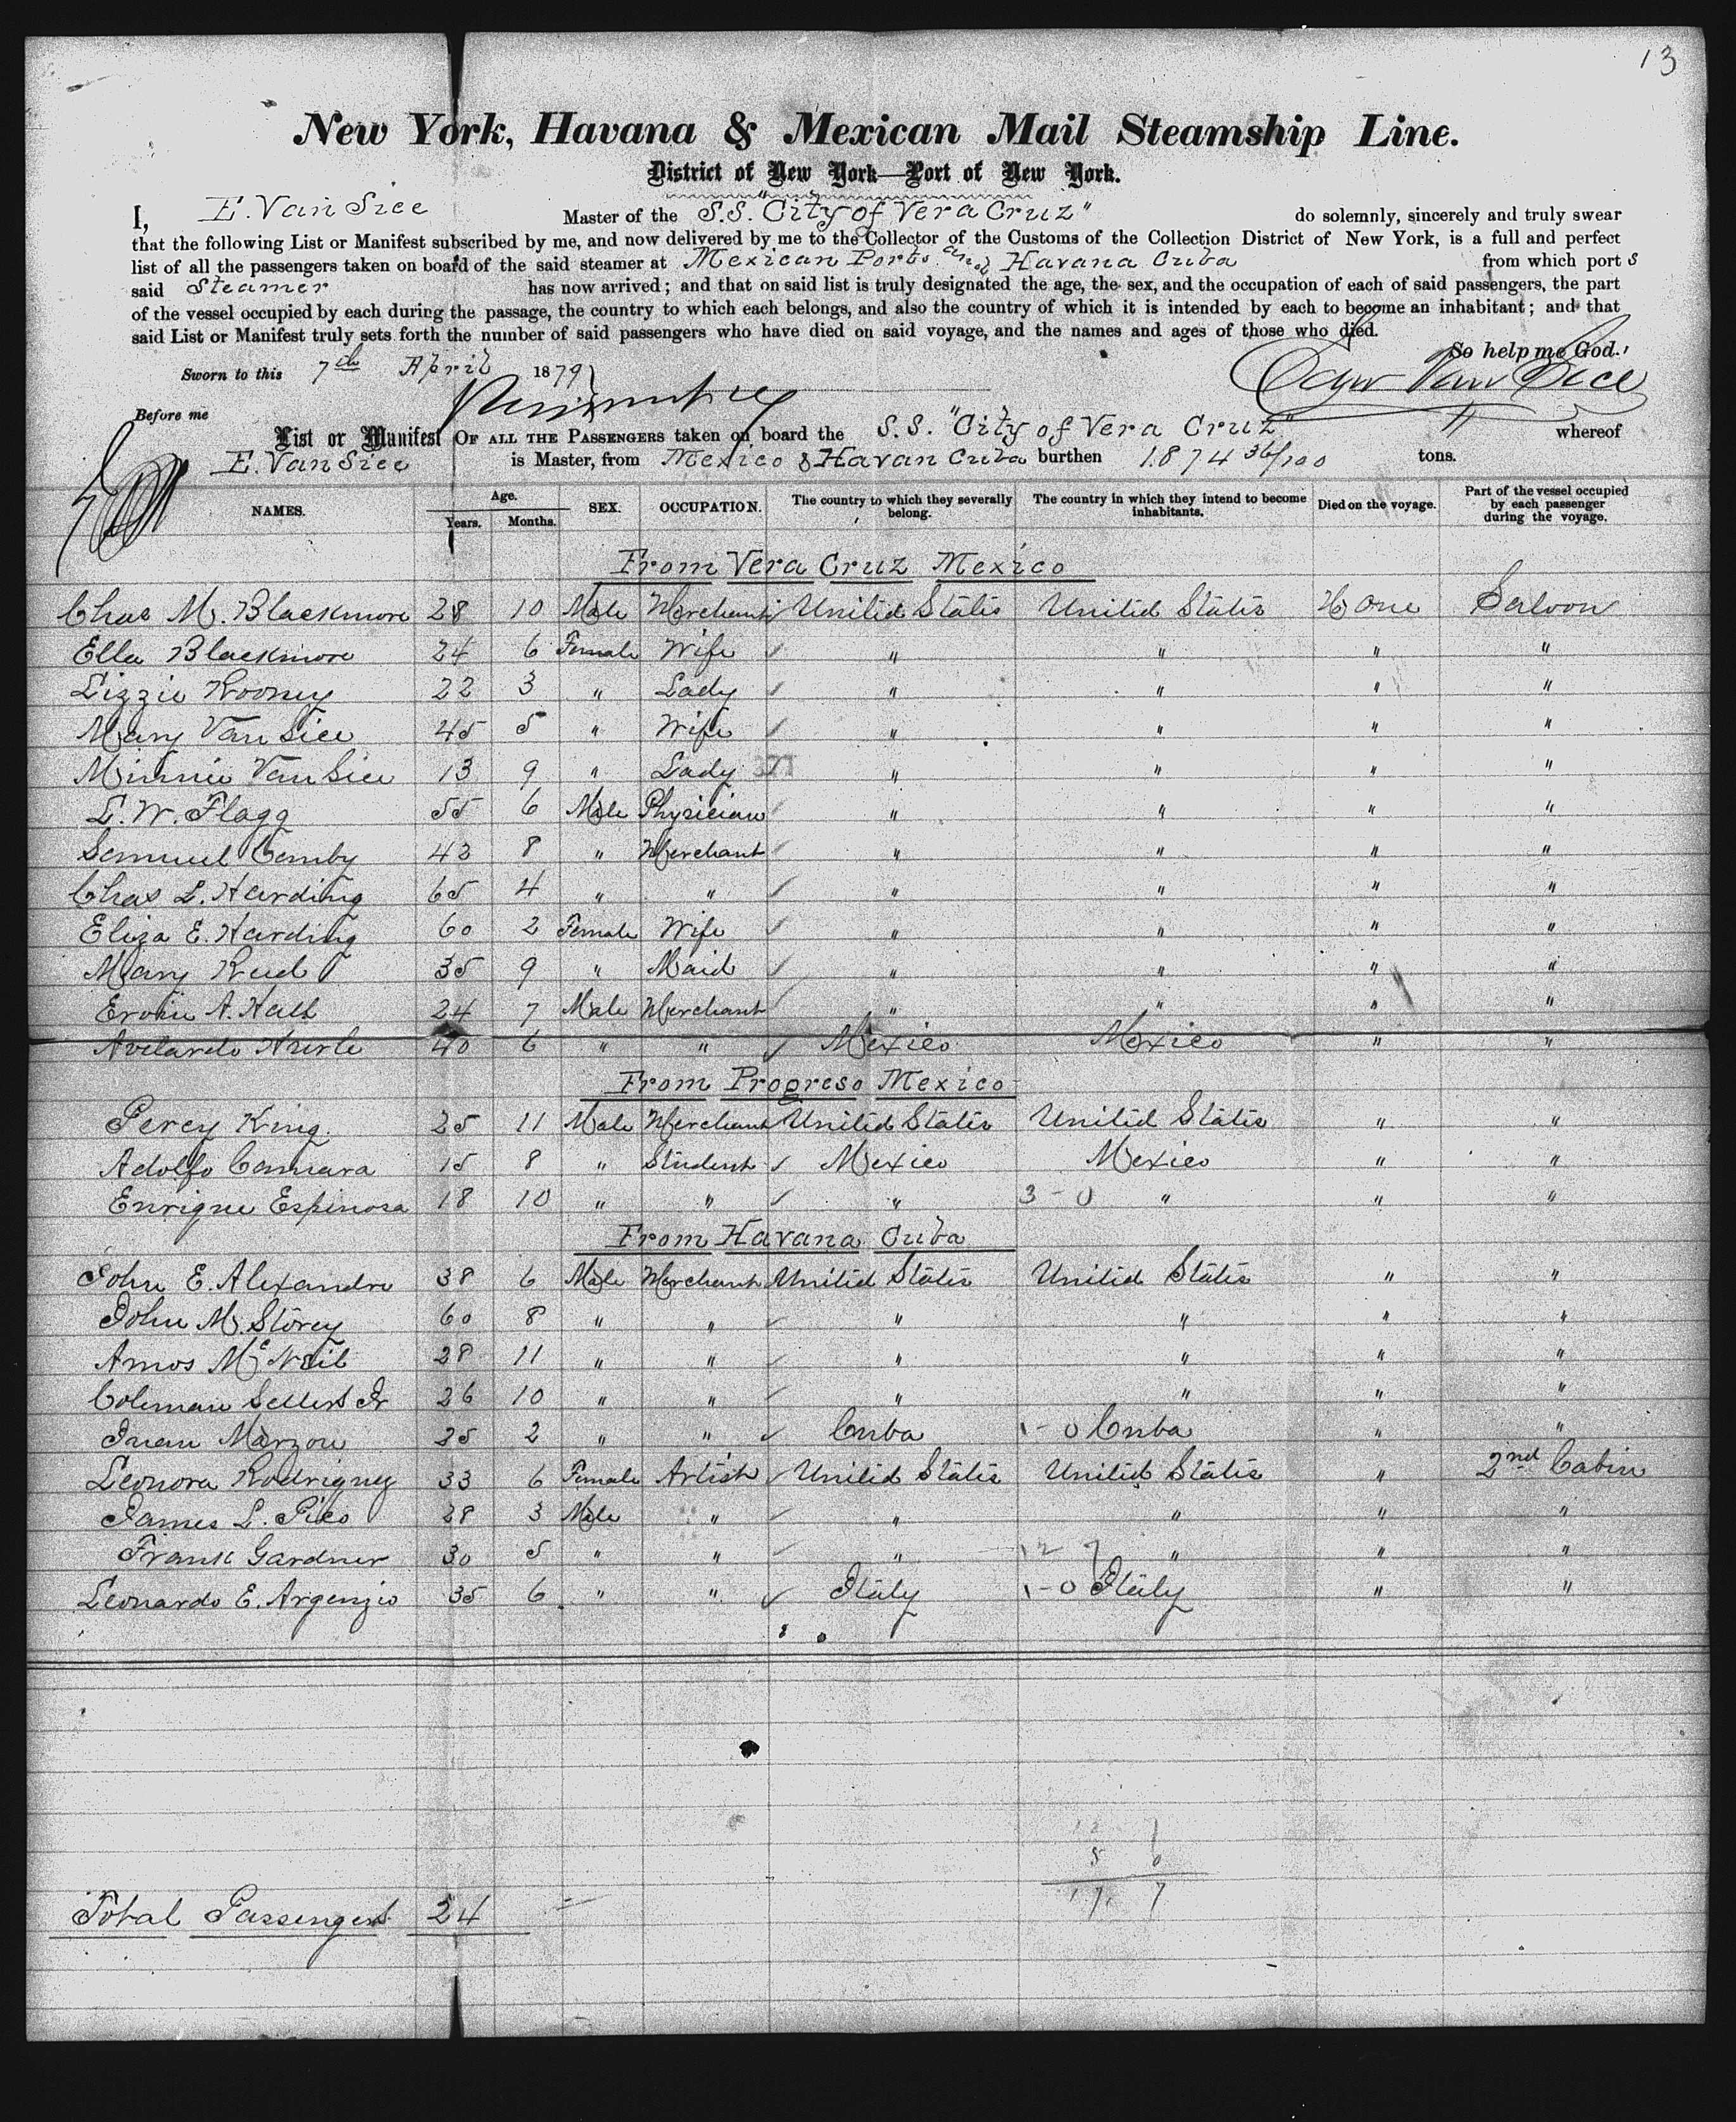 13
New York, Havana & Mexican Mail Steamship Line.
District of New York—Port of New York.
I, E. Van Sice Master of the S.S. "City of Vera Cruz" do solemnly, sincerely and truly swear
that the following List or Manifest subscribed by me, and now delivered by me to the Collector of the Customs of the Collection District of New York, is a full and perfect
list of all the passengers taken on board of the said steamer at Mexican Ports and Havana Cuba from which port s
said Steamer has now arrived; and that on said list is truly designated the age, the sex, and the occupation of each of said passengers, the part
of the vessel occupied by each during the passage, the country to which each belongs, and also the country of which it is intended by each to become an inhabitant; and that
said List or Manifest truly sets forth the number of said passengers who have died on said voyage, and the names and ages of those who died.
So help me God.
Sworn to this 7th April 1879
Before me
List or Manifest OF ALL THE PASSENGERS taken on board the S.S. "City of Vera Cruz" whereof
E. Van Sice is Master, from Mexico & Havan Cuba burthen 1874 36/100 tons.
NAMES. Age. Years. Months. SEX. OCCUPATION. The country to which they severally belong. The country in which they intend to become inhabitants. Died on the voyage. Part of the vessel occupied by each passenger during the voyage.
From Vera Cruz Mexico
Chas M. Blackmore 28 10 Male Merchant United States United States None Saloon
Ella Blackmore 24 6 Female Wife " " " "
Lizzie Rooney 22 3 " Lady " " " "
Mary Van Sice 45 5 " Wife " " " "
Minnie Van Sice 13 9 " Lady " " " "
L. W. Flagg 55 6 Male Physician " " " "
Samuel Camby 43 8 " Merchant " " " "
Chas L. Harding 65 4 " " " " " "
Eliza E. Harding 60 2 Female Wife " " " "
Mary Rud 35 9 " Maid " " " "
Ervin A. Hall 24 7 Male Merchant " " " "
Avelardo 40 6 " " Mexico Mexico " "
From Progreso Mexico
Percy King. 25 11 Male Merchant United States United States " "
Adolfo Camara 15 8 " Student Mexico Mexico " "
Enrique Espinosa 18 10 " " " 3-0 " " "
From Havana Cuba
John E. Alexandre 38 6 Male Merchant United States United States " "
John M. Storey 60 8 " " " " " "
Amos McNeil 28 11 " " " " " "
Coleman Sellers Jr 26 10 " " " " " "
Juan Marzou 25 2 " " Cuba 1-0 Cuba " "
Leonora Rodriguez 33 6 Female Artist United States United States " 2nd Cabin
James L. Pico 28 3 Male " " " " "
Frank Gardner 30 5 " " " 12 7 " " "
Leonardo E. Argenzio 35 6 " " Italy 1-0 Italy " "
12 1
5 6
17 7
Total Passengers 24